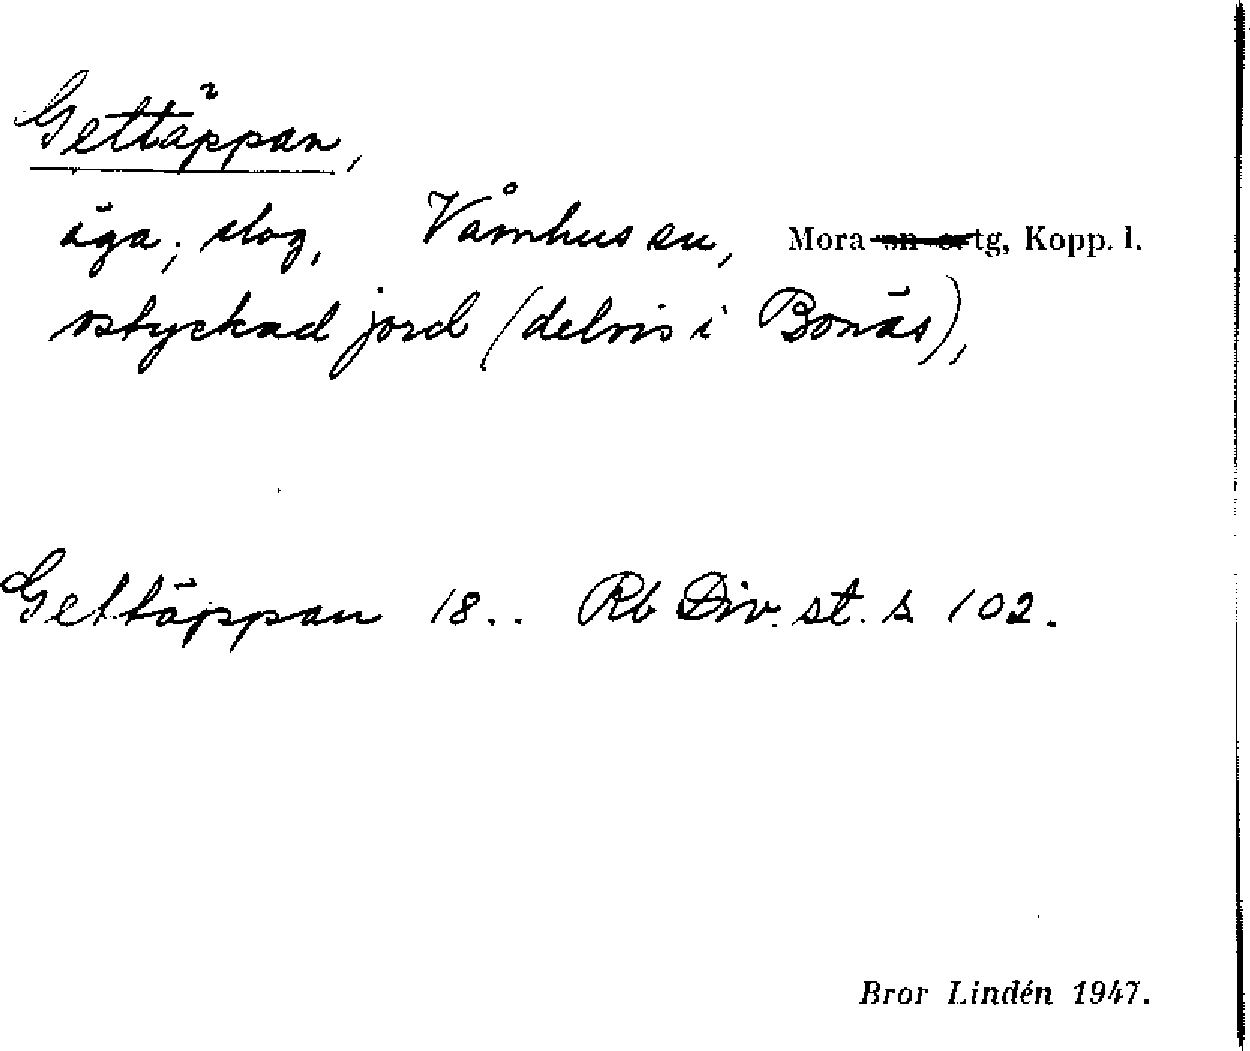 Gettäppan,
äga; slog, Våmhus sn, Mora tg, Kopp. l.
ostyckad jord (delvis i Bonäs),
Gettäppan 18.. Rb Div. st. s 102.
Bror Lindén 1947.